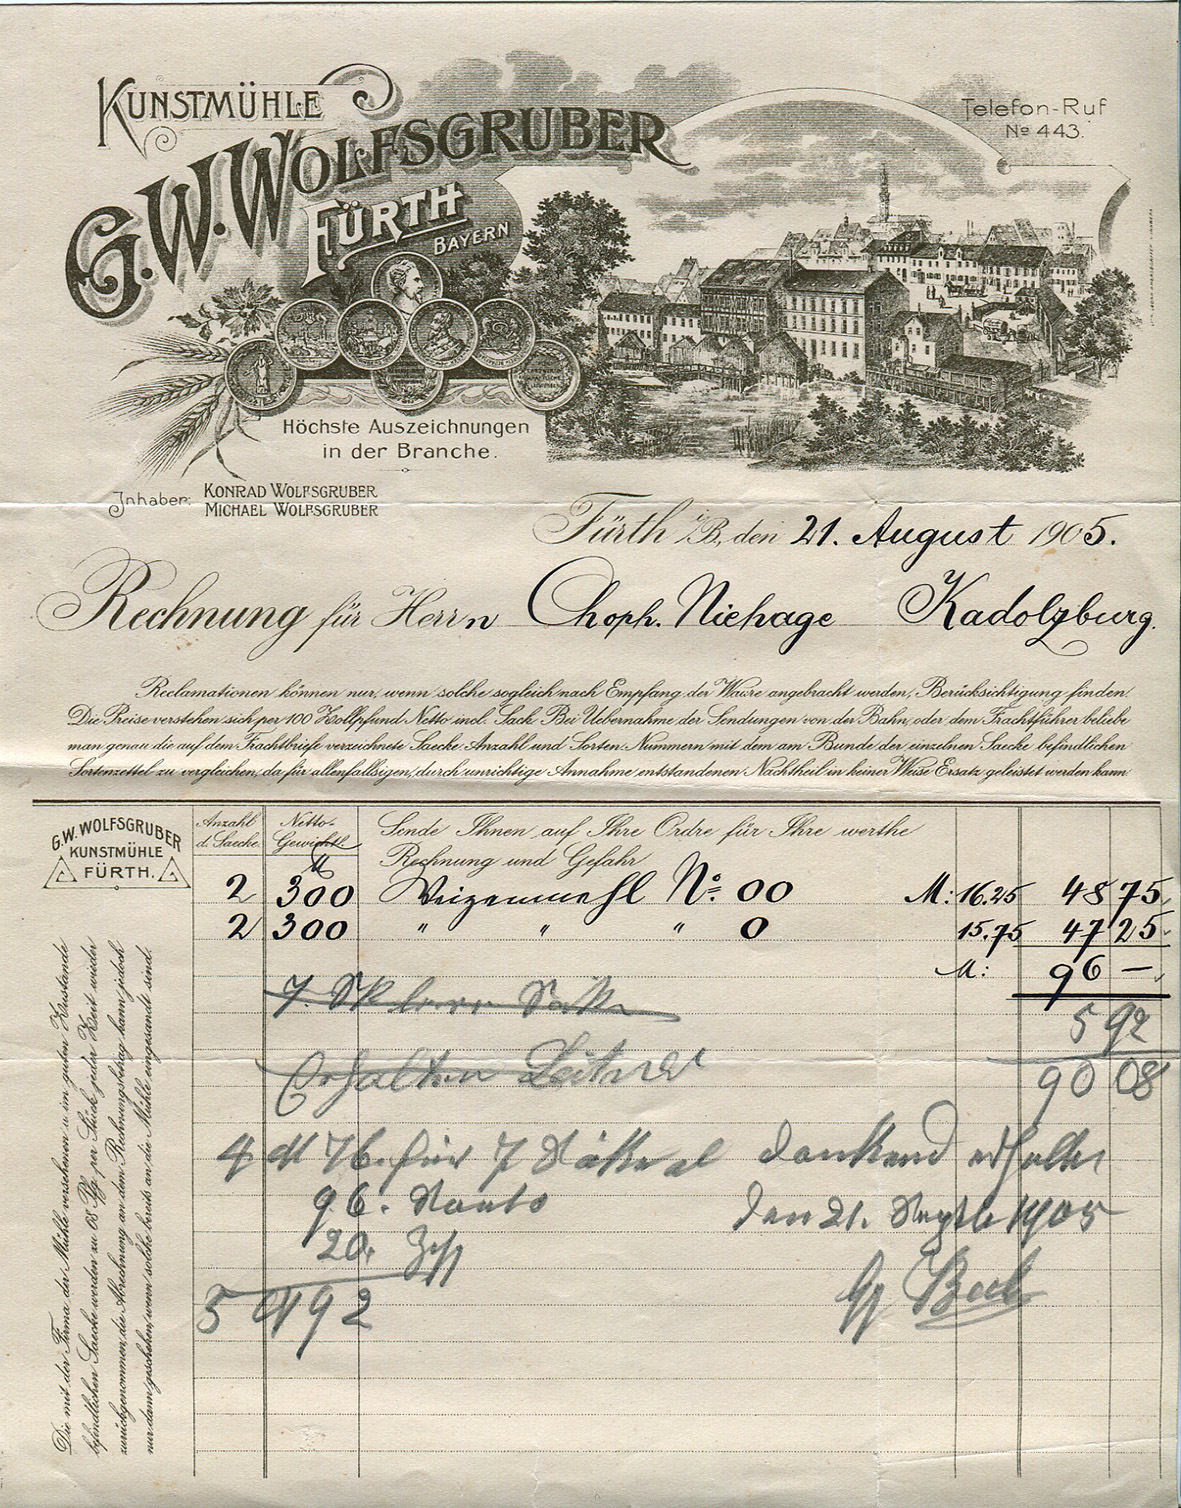 KUNSTMÜHLE
G.W. WOLFSGRUBER
FÜRTH
BAYERN
Telefon-Ruf
No 443.
Höchste Auszeichnungen
in der Branche.
Inhaber: KONRAD WOLFSGRUBER
MICHAEL WOLFSGRUBER
Fürth i/B, den 21. August 1905.
Rechnung für Herrn Choph. Niehage Kadolzburg.
Reclamationen können nur, wenn solche sogleich nach Empfang der Waare angebracht werden, Berücksichtigung finden.
Die Preise verstehen sich per 100 Zollpfund Netto incl. Sack. Bei Uebernahme der Sendungen von der Bahn, oder dem Frachtführer beliebe
man genau die auf dem Frachtbriefe verzeichnete Saecke-Anzahl und Sorten-Nummern mit dem am Bunde der einzelnen Saecke befindlichen
Sortenzettel zu vergleichen, da für allenfallsigen, durch unrichtige Annahme entstandenen Nachtheil in keiner Weise Ersatz geleistet werden kann
G.W. WOLFSGRUBER
KUNSTMÜHLE
FÜRTH.
Anzahl d. Saecke.
Netto-Gewicht
Sende Ihnen auf Ihre Ordre für Ihre werthe
Rechnung und Gefahr
2 300 Weizenmehl No: 00 M: 16.25 48 75
2 300 " " " 0 15.75 47 25
M: 96 —
5 92
90 08
Erhalten
4 M 76. für 7 Säcke dankend erhalten
96. Sconto den 21. Septb 1905
20.
5 M 92
Die mit der Firma der Mühle versehenen u. im guten Zustande
befindlichen Saecke werden zu 68 Pfg. per Stück jeder Zeit wieder
zurückgenommen, die Abrechnung an dem Rechnungsbetrag kann jedoch
nur dann geschehen, wenn solche bereits an die Mühle eingesandt sind.